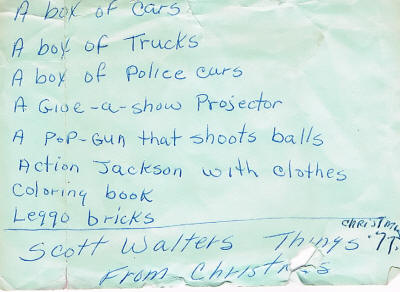 A box of cars
A box of Trucks
A box of Police cars
A Give-a-show Projector
A POP-Gun that shoots balls
Action Jackson with clothes
Coloring book
Leggo bricks
Scott Walters Things
From Christmas